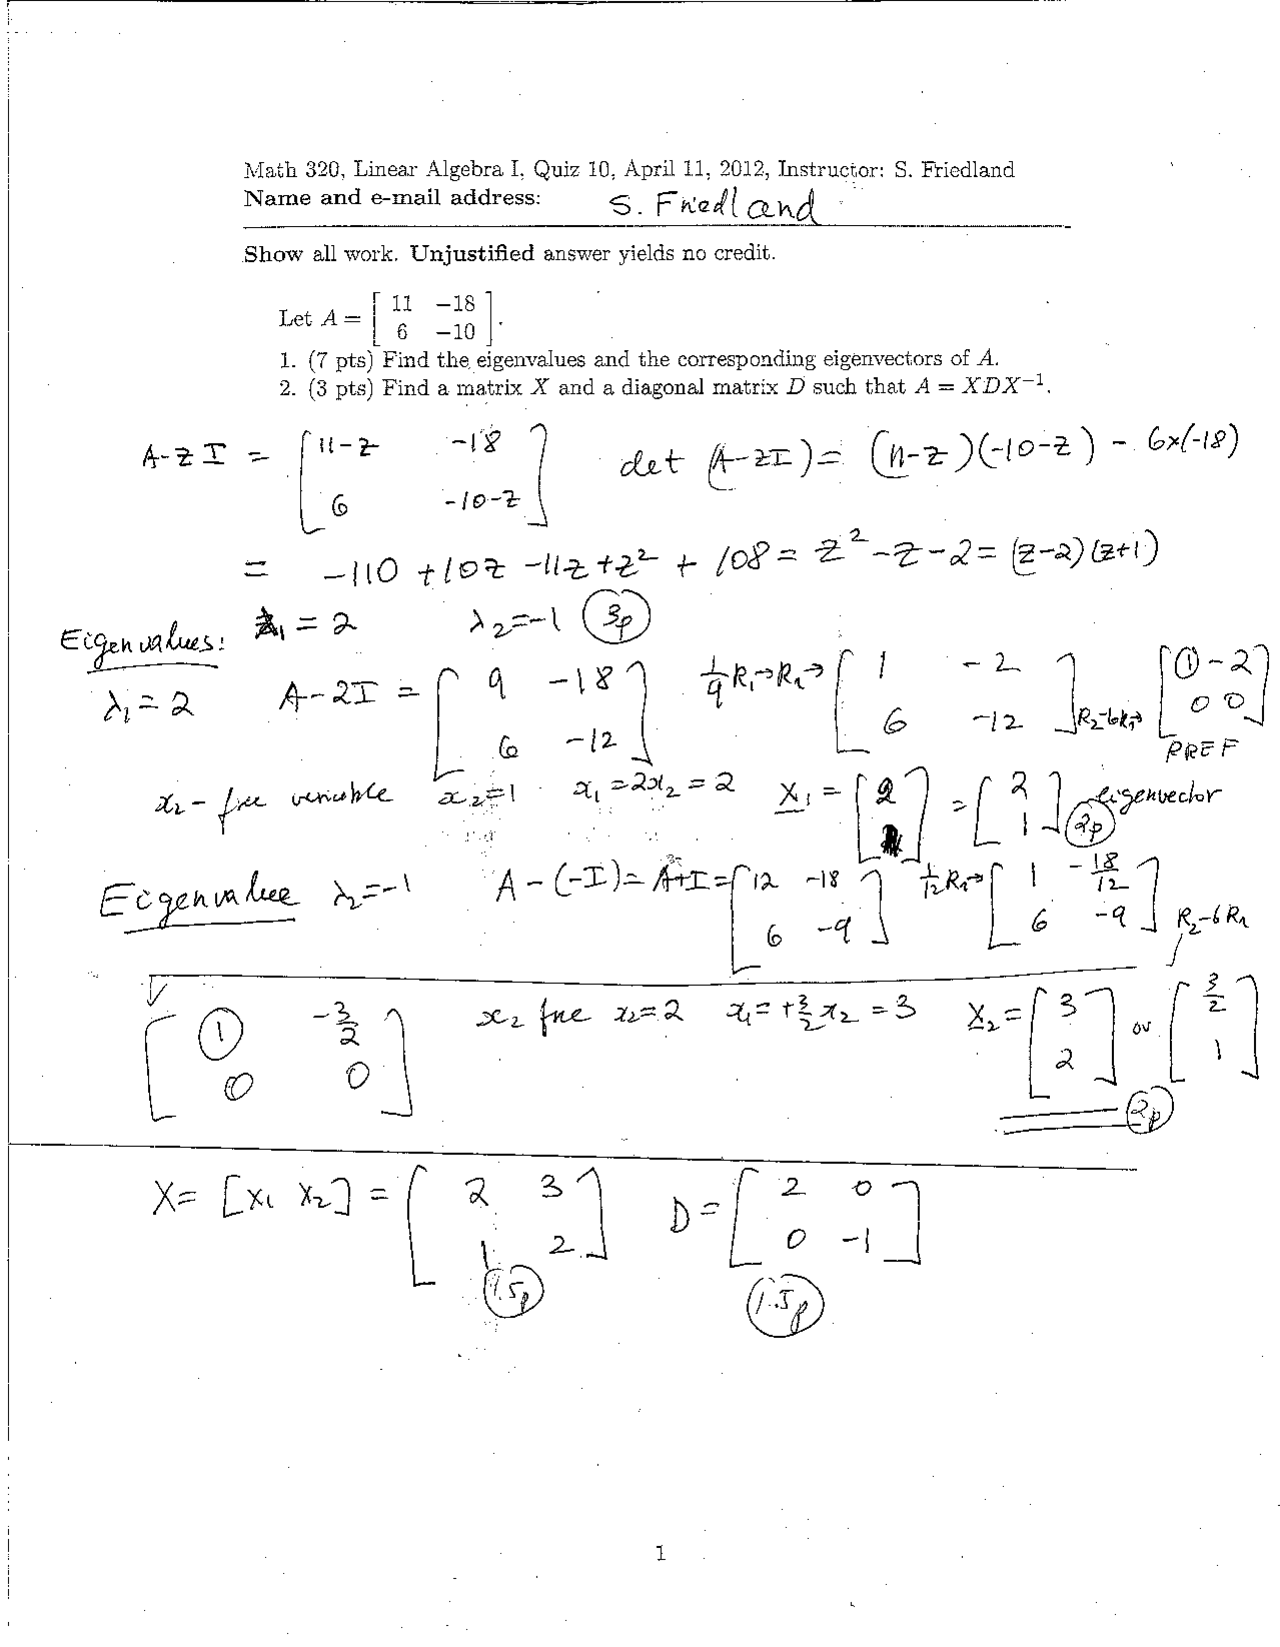 Math 320, Linear Algebra I, Quiz 10, April 11, 2012, Instructor: S. Friedland
Name and e-mail address: S. Friedland
Show all work. Unjustified answer yields no credit.
Let A = [ 11 −18 ; 6 −10 ].
1. (7 pts) Find the eigenvalues and the corresponding eigenvectors of A.
2. (3 pts) Find a matrix X and a diagonal matrix D such that A = XDX⁻¹.
A-zI = [ 11-z -18 ; 6 -10-z ] det (A-zI) = (11-z)(-10-z) - 6x(-18)
= -110 +10z -11z +z² + 108 = z² -z -2 = (z-2)(z+1)
Eigenvalues: λ₁ = 2 λ₂=-1 3p
λ₁=2 A-2I = [ 9 -18 ; 6 -12 ] 1/9 R₁→R₁→ [ 1 -2 ; 6 -12 ] R₂-6R₁→ [ 1 -2 ; 0 0 ]
RREF
x₂ - free variable x₂=1 x₁=2x₂=2 X₁ = [ 2 ; ] = [ 2 ; 1 ] eigenvector 2p
Eigenvalue λ₂=-1 A-(-I)= A+I = [ 12 -18 ; 6 -9 ] 1/12 R₁→ [ 1 -18/12 ; 6 -9 ] R₂-6R₁
[ 1 -3/2 ; 0 0 ] x₂ free x₂=2 x₁=+3/2 x₂ = 3 X₂ = [ 3 ; 2 ] or [ 3/2 ; 1 ]
2p
X= [x₁ x₂] = [ 2 3 ; 1 2 ] D = [ 2 0 ; 0 -1 ]
1.5p 1.5p
1